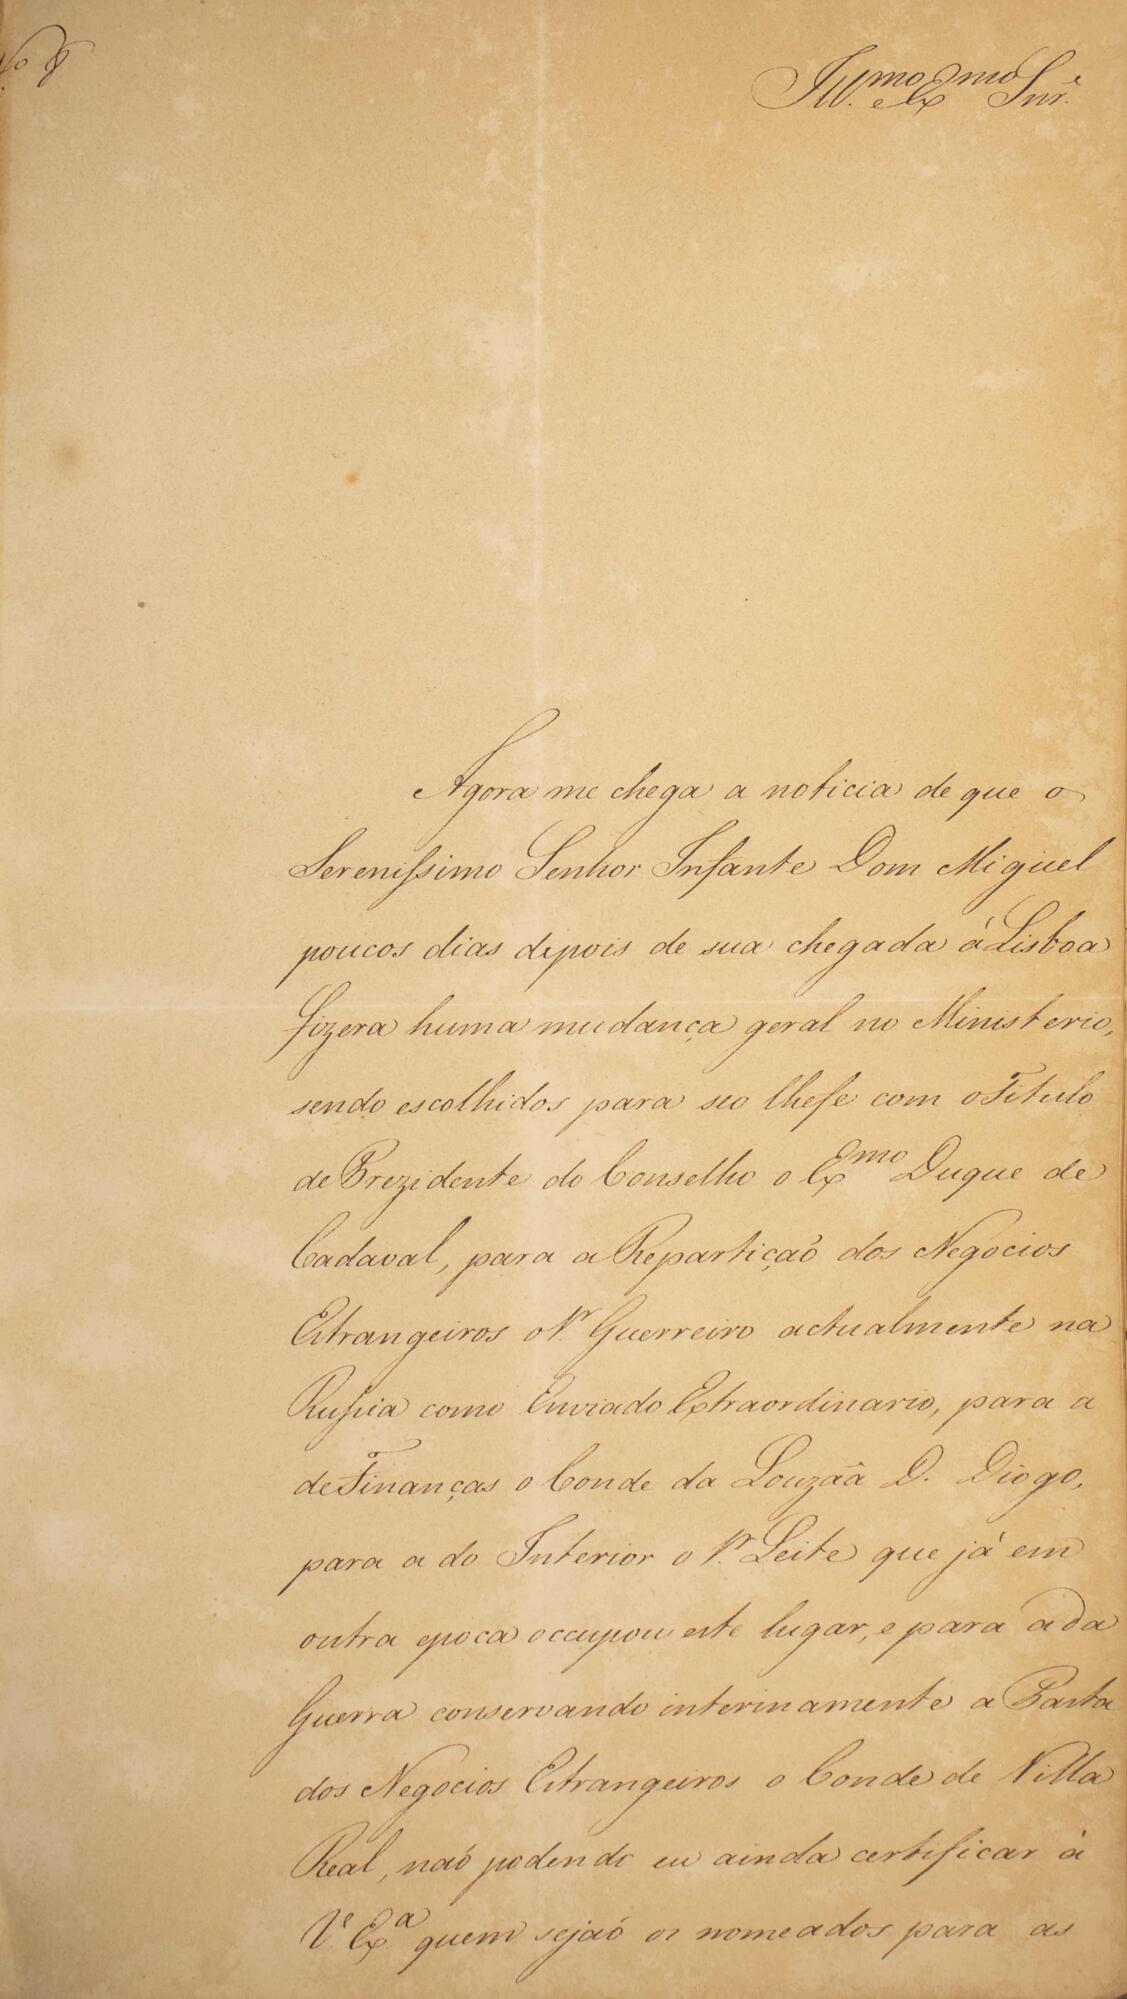 N.o 8
Ill.mo e Ex.mo Snr.
Agora me chega a noticia de que o
Serenissimo Senhor Infante Dom Miguel
poucos dias depois de sua chegada á Lisboa
fizera huma mudança geral no Ministerio,
sendo escolhidos para seo Chefe com o Titulo
de Prezidente do Conselho o Ex.mo Duque de
Cadaval, para a Repartiçaõ dos Negocios
Estrangeiros o Sr. Guerreiro actualmente na
Russia como Enviado Extraordinario, para a
de Finanças o Conde da Louzãa D. Diogo,
para a do Interior o Sr. Leite que já em
outra epoca occupou este lugar, e para a da
Guerra conservando interinamente a Pasta
dos Negocios Estrangeiros o Conde de Villa
Real, naõ podendo eu ainda certificar á
V.e Ex.a quem sejaõ os nomeados para as